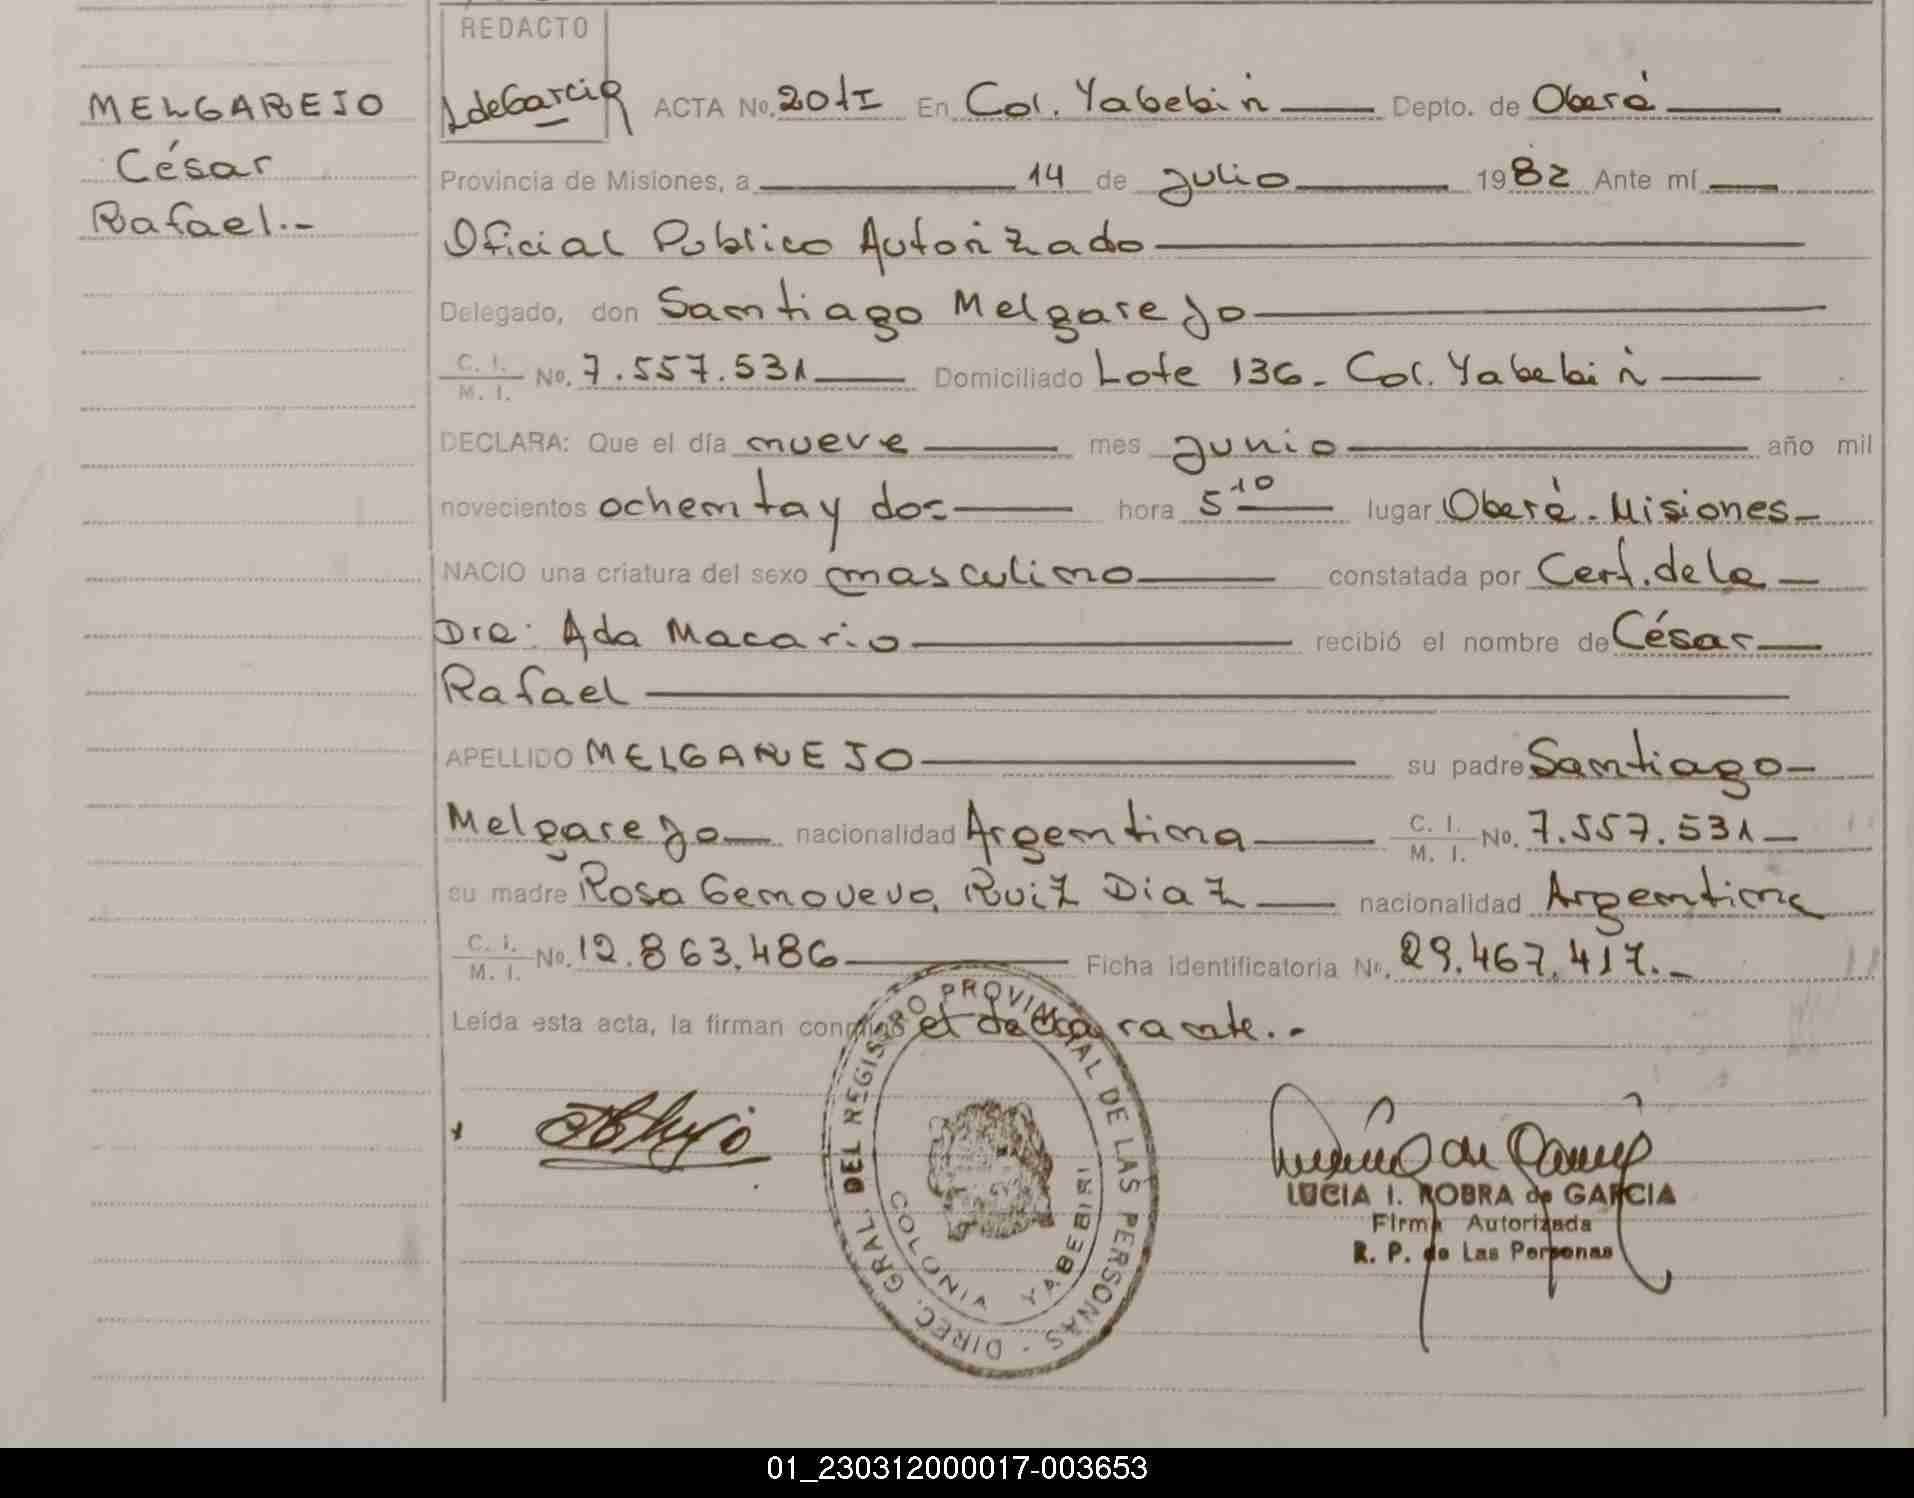 REDACTO
LdeGarcia
MELGAREJO
César
Rafael.-
ACTA No. 20 t I En Col. Yabebiri Depto. de Oberá
Provincia de Misiones, a 14 de Julio 1982 Ante mí
Oficial Publico Autorizado
Delegado, don Santiago Melgarejo
C. I. / M. I. No. 7.557.531 Domiciliado Lote 136- Col. Yabebiri
DECLARA: Que el día nueve mes Junio año mil
novecientos ochenta y dos hora 5 10 lugar Oberá-Misiones-
NACIO una criatura del sexo masculino constatada por Cert. de la
Dra: Ada Macario recibió el nombre de César
Rafael
APELLIDO MELGAREJO su padre Santiago-
Melgarejo nacionalidad Argentina C. I. / M. I. No. 7.557.531-
su madre Rosa Genoveva Ruiz Diaz nacionalidad Argentina
C. I. / M. I. No. 12.863.486 Ficha identificatoria No. 29.467.417.-
Leída esta acta, la firman conmigo el declarante.-
DIREC. GRAL. DEL REGISTRO PROVINCIAL DE LAS PERSONAS -
COLONIA YABEBIRI
LUCIA I. ROBRA de GARCIA
Firma Autorizada
R. P. de Las Personas
01_230312000017-003653